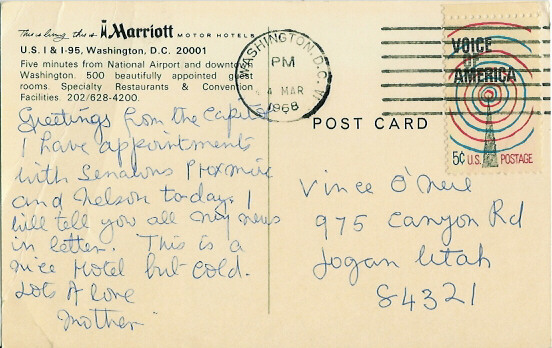 This is living, this is Marriott MOTOR HOTELS
U.S. I & I-95, Washington, D.C. 20001
Five minutes from National Airport and downtown
Washington. 500 beautifully appointed guest
rooms. Specialty Restaurants & Convention
Facilities. 202/628-4200.
Greetings from the Capitol
I have appointments
with Senators Proxmire
and Nelson today. I
will tell you all my news
in letter. This is a
nice Hotel but cold.
Lots A love
Mother
WASHINGTON, D.C.
PM
4 MAR
1968
POST CARD
VOICE
OF
AMERICA
5¢ U.S. POSTAGE
Vince O'Neil
975 Canyon Rd
Logan Utah
84321